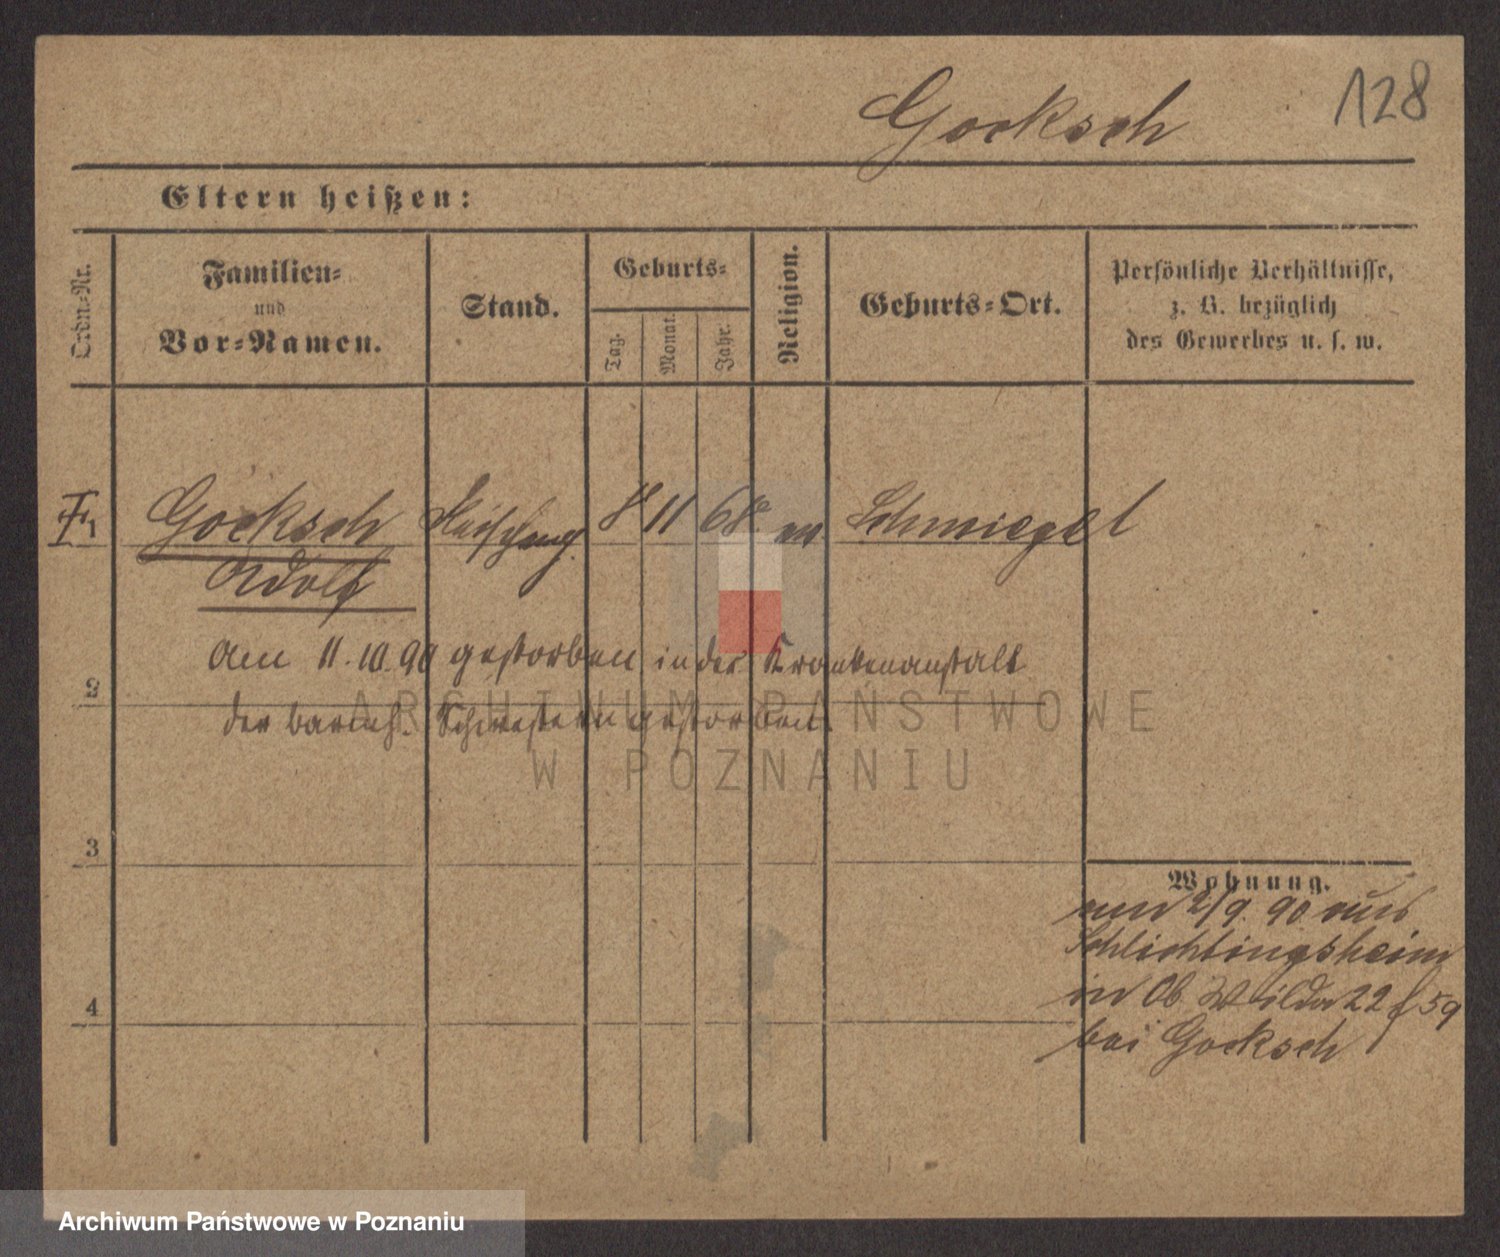 128
Gocksch
Eltern heißen:
Ordn=Nr.
Familien=
und
Vor=Namen.
Stand.
Geburts=
Tag.
Monat.
Jahr.
Religion.
Geburts=Ort.
Persönliche Verhältnisse,
z. B. bezüglich
des Gewerbes u. s. w.
Gocksch 8 11 68. Schmiegel
Adolf
Am 11.10.90 gestorben in der Krankenanstalt
2
der barmh. Schwestern gestorben.
3
4
Wohnung.
2/9. 90 aus
Schlichtingsheim
in Ob. Wilda 22 f 59
bei Gocksch
ARCHIWUM PAŃSTWOWE
W POZNANIU
Archiwum Państwowe w Poznaniu